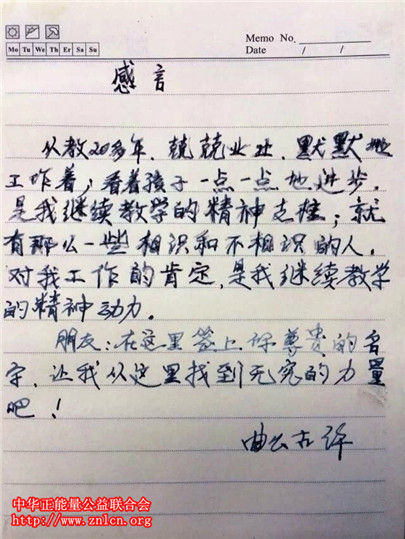 Memo No.
Mo Tu We Th Er Sa Su
Date / /
感言
从教20多年，兢兢业业，默默地
工作着；看着孩子一点一点地进步，
是我继续教学的精神支柱；就
有那么一些相识和不相识的人，
对我工作的肯定，是我继续教学
的精神动力。
朋友：在这里签上你尊贵的名
字，让我从这里找到无穷的力量
吧！
曲公古许
中华正能量公益联合会
http://www.znlcn.org